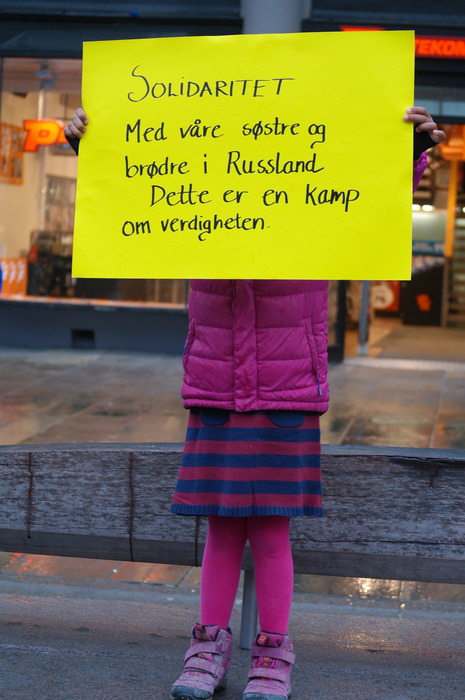 SOLIDARITET
Med våre søstre og
brødre i Russland
Dette er en kamp
om verdigheten.
TEKOM